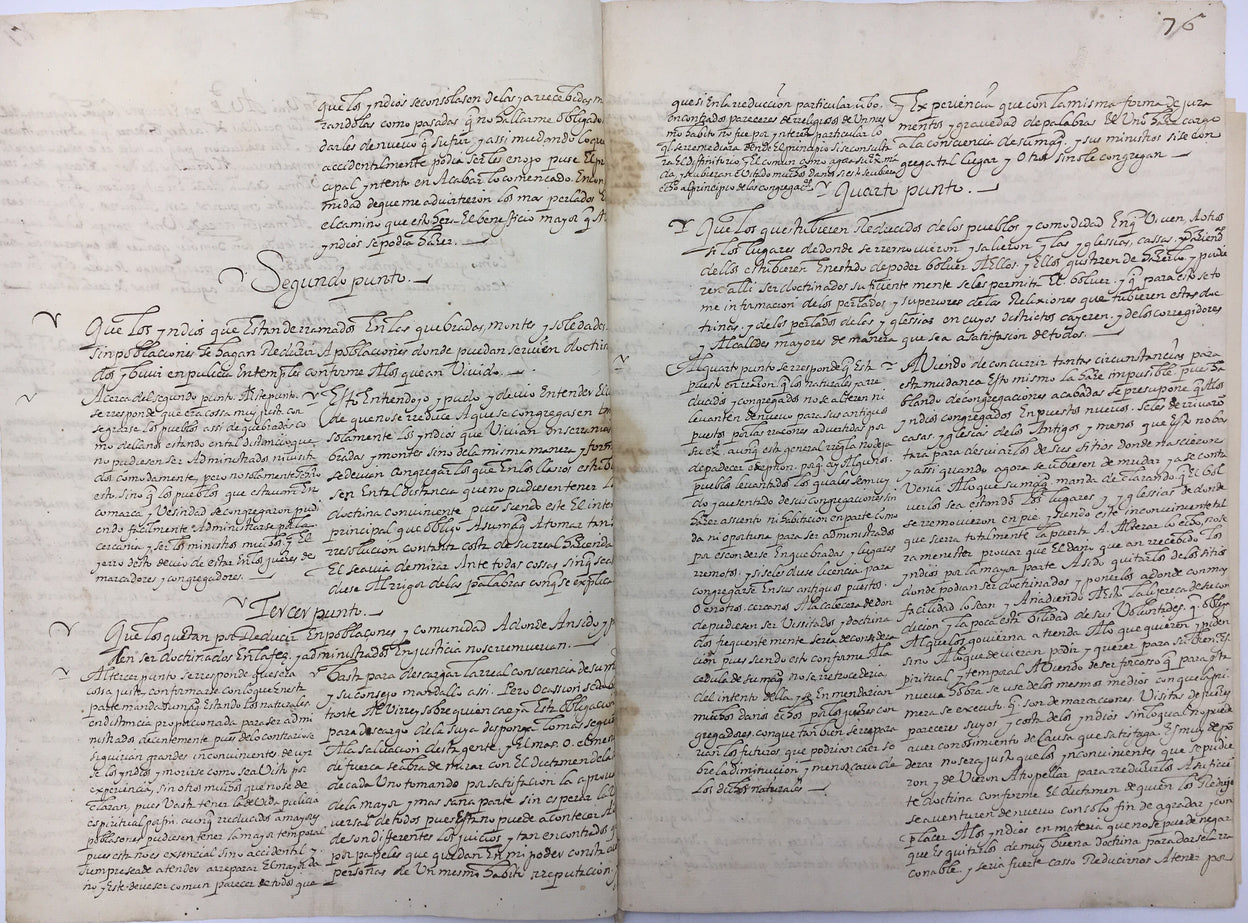 que los yndios se consolasen de las ya recebidas
randolas como pasadas q̃ no hallarme obligado
darles de nuevo q̃ sufrir y assi mudando lo que
accidentalmente podia serles enojo puse El
cipal yntento en Acabar lo comencado. En con
midad de que me advirtieron los mas perlados
el camino que esto hera El beneficio mayor q̃ A
yndios se podia hazer.
Segundo punto.
Que los yndios que Estan derramados En las quebradas, montes y soledades
sin poblaciones se hagan Reducir A poblaciones donde puedan ser bien doctrina
dos y bivir en pulicia En temples conforme A los que an Vivido.
Acerca del segundo punto. A este punto.
se responde que era cossa muy justa con
gregarse los pueblos assi de quebradas co
mo de llanos estando en tal distancia que
no pudiesen ser Administrados ni visita
dos comodamente, pero no solamente se hizo
esto, sino q̃ los pueblos que estavan En
comarca y Vezindad se congregaron pudi
endo facilmente Administrarse por la
cercania y ser los ministros muchos y El
yerro desto devio de estar En los juezes de
marcadores y congregadores.
Esto Entendo yo y pudo y devio Entender El
de que no se reduce A que se congregasen
solamente los yndios que Vivian En serranias
bradas y montes sino de la misma manera y forma
se devian congregar los que En los llanos estubie
sen En tal distancia que no pudiesen tener
doctrina conviniente pues siendo este El inten
principal que obligo A su mag.d A tomar tan
rresolucion con tanta costa de su rreal hazienda
El se avia de mirar Ante todas cossas sin q̃ se a
diese Al rrigor de las palabras con q̃ se explica
Tercer punto.
Que los que estan por Reducir En poblaciones y comunidad A donde An sido y
den ser doctrinados En la fee, y administrados En justicia no se rremuevan.
Al tercer punto se rresponde que sera
cosa justa confirmarse con lo que En esta
parte manda su mag.d Estando los naturales
en distancia proporcionada para ser admi
nistrados decentemente pues de lo contrario se
siguirian grandes inconvinientes de uyr
se los yndios y morirse como se a Visto por
experiencia, sin otros muchos que no se de
claran, pues Vasta tener la devida pulicia
espiritual por fin. aunq̃ rreducidos a mayores
poblaciones pudiesen tener la mayor temporal
pues esta no es esencial sino accidental y
siempre se a de atender a rreparar El mayor da
no y este deve ser comun parecer de todos que
Vasta para descargar la rreal consciencia de su m
y su consejo mandallo assi. Pero Ocassion se da
tiorte Al Virrey sobre quien carga Esta obligacion
para descargo de la suya disponga lo mas seguro
A la salvacion desta gente y El mas. O. el menos
de fuerca se abra de mirar con El dictamen de la
de cada Uno tomando por satisfacion la aprova
de la mayor y mas sana parte sin esperar la V
versal de todos pues Esta no puede acontecer A
de son differentes los juicios y tan encontrados
por papeles que quedan En mi poder consta
personas de Un mesmo habito rreputacion
76
que si En la reduccion particular ubo
encontrados pareceres de rreligiosos de Un mes
mo habito no fue por ynteres particular lo
q̃l se rremediara donde El principio se consulta
ra El diffinitorio y El comun como agora su Ex.a man
da y se ubieran Evitado muchos danos si esto se ubiera
echo al principio de las congregaciones
y Experiencia que con la misma forma de jura
mentos y gravedad de palabras El Uno haze cargo
a la consciencia de su mag.d y sus ministros si se con
grega tal lugar y Otro si no le congregan
Quarto punto.
Que Los que estubieren Reducidos de los pueblos y comodidad En q̃ Viven, A otros
si los lugares de donde se rremovieron y salieron y las yglesias, cassas y haziend.as
dellos estubieren En estado de poder bolver A Ellos. y Ellos gustaren de hazerlo. y pudie
ren alli ser doctrinados suficientemente se les permita El bolver. y q̃ para esto se to
me informacion de los perlados, y superiores de las Relixiones que tubieren estas doc
trinas, y de los perlados de las yglesias en cuyos districtos cayeren. y de los corregidores
y Alcaldes mayores de manera que sea a satisfacion de todos.
Al quarto punto se rresponde q̃ Est
puesto En razon q̃ los naturales ya rre
ducidos y congregados no se alteren ni
levanten de nuevo para sus antiguos
puestos por las razones advertidas por
su ex.a aunq̃ esta general rregla no deja
de padecer exeption. porq̃ ay Algunos.
pueblos levantados los quales sembra
do y asentado de sus congregaciones sin
hazer assiento ni habitacion en parte como
da ni oportuna para ser administrados
por esconderse En quebradas y lugares
rremotos. y si se les diese licencia para
congregarse En sus antiguos puestos.
O en otros cercanos A la cabecera de don
de pudiesen ser Visitados y doctrina
dos frequentemente seria de considera
cion pues siendo esto conforme A la
cedula de su mag.d no se rretrocederia
del intento della, y se Enmendarian
muchos danos echos por los juezes con
gregadores. con que tanbien se rrepara
rian los futuros que podrian caer so
bre la diminucion y menoscavo de
Los dichos naturales
Aviendo de concurrir tantas circunstancias para
esta mudanca Esto mismo la haze imposible pues ha
blando de congregaciones acabadas se presupone q̃ a los
yndios congregados En puestos nuevos. se les derrivaron
casas, yglesias de los Antigos y menos que Esto no bas
tara para desviarlos de sus sitios donde nascieron
y assi quando agora se ubiesen de mudar ya se contra
venia A lo que su mag.d manda declarando q̃ El bol
verlos sea estando Los lugares y yglesias de donde
se rremovieron en pie y siendo este inconviniente tal
que cierra totalmente la puerta A. Alterar lo echo, no se
ra menester provar que El dano que an recebido Los
yndios por la mayor parte A sido quitarlos de los sitios
donde podian ser doctrinados y ponerlos a donde con mas
facilidad lo sean y Anadiendo A Esto La lijereca de su con
dicion y la poca estabilidad de sus Voluntades. q̃ obliga
A q̃ el que los govierna atienda A lo que quieren y piden
sino A lo que devieran pedir y querer para su bien Es
piritual y temporal Aviendo de ser forcoso q̃ para esta
nueva Obra se use de los mesmos medios con que la pri
mera se executo. q̃ son demarcaciones Visitas de juezes
pareceres suyos y costa de los yndios sin lo qual no puede
aver conoscimiento de Causa que satisfaga. Es muy de pon
derar no sera justo que los ynconvinientes que se pudie
ron y devieron Atropellar para rreducirlos A suficien
te doctrina conforme El dictamen de quien los Redujo
se aventuren de nuevo con solo fin de agradar y con
placer A los yndios en materia que no se puede negar
que Es quitarlos de muy buena doctrina para darsela rra
conable. y seria fuerte casso Reducirnos A tener por